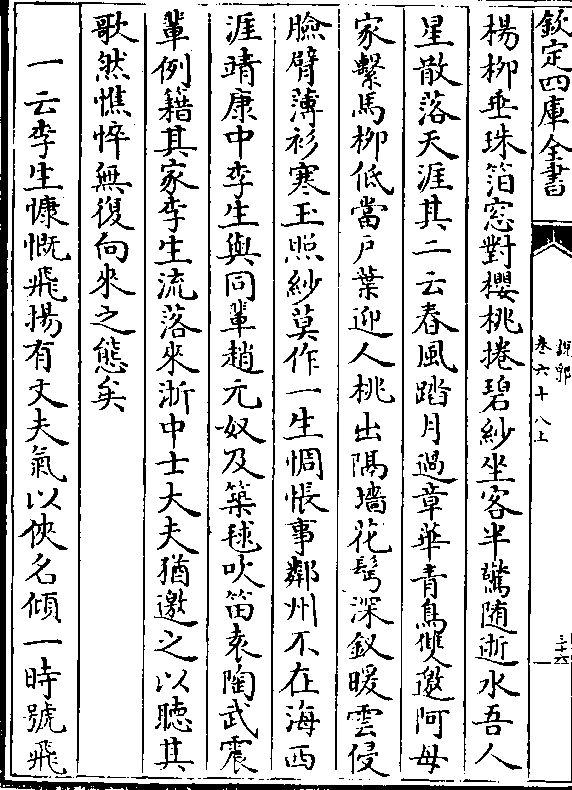 欽定四庫全書
說郛
卷六十八上
三十六
楊柳垂珠箔窓對櫻桃捲碧紗坐客半驚随逝水吾人
星散落天涯其二云春風踏月過章華青鳥雙邀阿母
家繫馬柳低當戶葉迎人桃出隔墻花鬂深釵暖雲侵
臉臂薄衫寒玉照紗莫作一生惆悵事鄰州不在海西
涯靖康中李生與同輩趙元奴及築毬吹笛袁陶武震
輩例籍其家李生流落來浙中士大夫猶邀之以聽其
歌然憔悴無復向來之態矣
一云李生慷慨飛揚有丈夫氣以俠名傾一時號飛